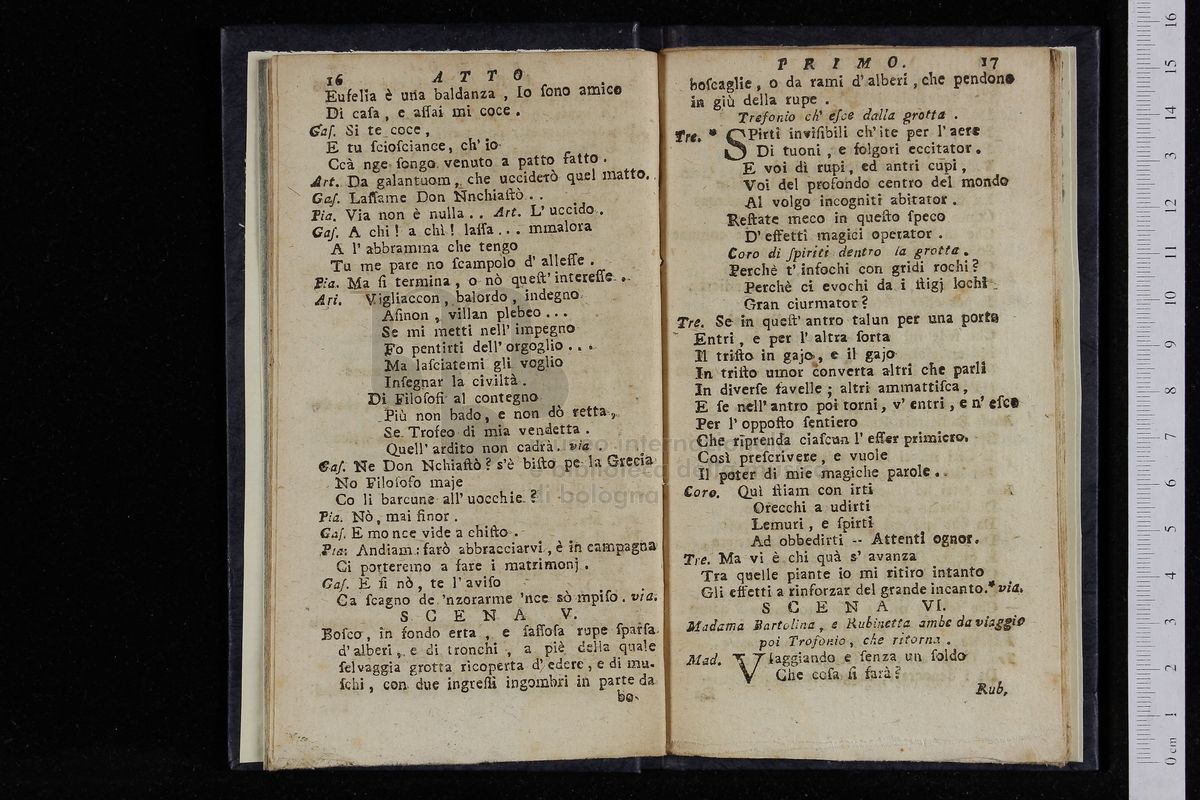 16 ATTO
Eufelia è una baldanza , Io ſono amico
Di caſa , e aſſai mi coce .
Gaſ. Si te coce ,
E tu ſcioſciance, ch' io
Ccà nge ſongo venuto a patto fatto .
Art. Da galantuom , che ucciderò quel matto.
Gaſ. Laſſame Don Nnchiaſtò . .
Pia. Via non è nulla . . Art. L' uccido .
Gaſ. A chi ! a chi ! laſſa . . . mmalora
A l' abbramma che tengo
Tu me pare no ſcampolo d' alleſſe .
Pia. Ma ſi termina , o nò queſt' intereſſe .
Ari. Vigliaccon , balordo , indegno
Aſinon , villan plebeo . . .
Se mi metti nell' impegno
Fo pentirti dell' orgoglio . . .
Ma laſciatemi gli voglio
Inſegnar la civiltà .
Di Filoſofi al contegno
Più non bado, e non dò retta ,
Se Trofeo di mia vendetta .
Quell' ardito non cadrà . via .
Gaſ. Ne Don Nchiaſtò ? s'è biſto pe la Grecia
No Filoſofo maje
Co li barcune all' uocchie ?
Pia. Nò, mai finor .
Gaſ. E mo nce vide a chiſto .
Pia: Andiam : farò abbracciarvi , è in campagna
Ci porteremo a fare i matrimonj .
Gaſ. E ſi nò , te l' aviſo
Ca ſcagno de 'nzorarme 'nce sò mpiſo . via.
SCENA V.
Boſco , in fondo erta , e ſaſſoſa rupe ſparſa
d' alberi , e di tronchi , a piè della quale
ſelvaggia grotta ricoperta d' edere , e di mu-
ſchi , con due ingreſſi ingombri in parte da
bo-
PRIMO. 17
boſcaglie , o da rami d' alberi , che pendono
in giù della rupe .
Trefonio ch' eſce dalla grotta .
Tre. * SPirti inviſibili ch' ite per l' aere
Di tuoni , e folgori eccitator .
E voi di rupi, ed antri cupi ,
Voi del profondo centro del mondo
Al volgo incogniti abitator .
Reſtate meco in queſto ſpeco
D' effetti magici operator .
Coro di ſpiriti dentro la grotta .
Perchè t' infochi con gridi rochi ?
Perchè ci evochi da i ſtigj lochi
Gran ciurmator ?
Tre. Se in queſt' antro talun per una porta
Entri , e per l' altra ſorta
Il triſto in gajo , e il gajo
In triſto umor converta altri che parli
In diverſe favelle ; altri ammattiſca ,
E ſe nell' antro poi torni , v' entri , e n' eſca
Per l' oppoſto ſentiero
Che riprenda ciaſcun l' eſſer primiero.
Così preſcrivere , e vuole
Il poter di mie magiche parole . .
Coro. Quì ſtiam con irti
Orecchi a udirti
Lemuri , e ſpirti
Ad obbedirti -- Attenti ognor.
Tre. Ma vi è chi quà s' avanza
Tra quelle piante io mi ritiro intanto
Gli effetti a rinforzar del grande incanto.* via.
SCENA VI.
Madama Bartolina , e Rubinetta ambe da viaggio
poi Trofonio , che ritorna .
Mad. VIaggiando e ſenza un ſoldo
Che coſa ſi farà ?
Rub,
museo internazionale
e biblioteca della musica
di bologna
0 cm 1 2 3 4 5 6 7 8 9 10 11 12 13 14 15 16